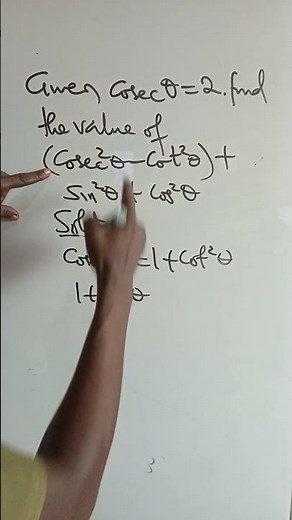 Given Cosecθ=2. find
the value of
(Cosec²θ-Cot²θ)+
Sin²θ + Cos²θ
=1+Cot²θ
1+ θ